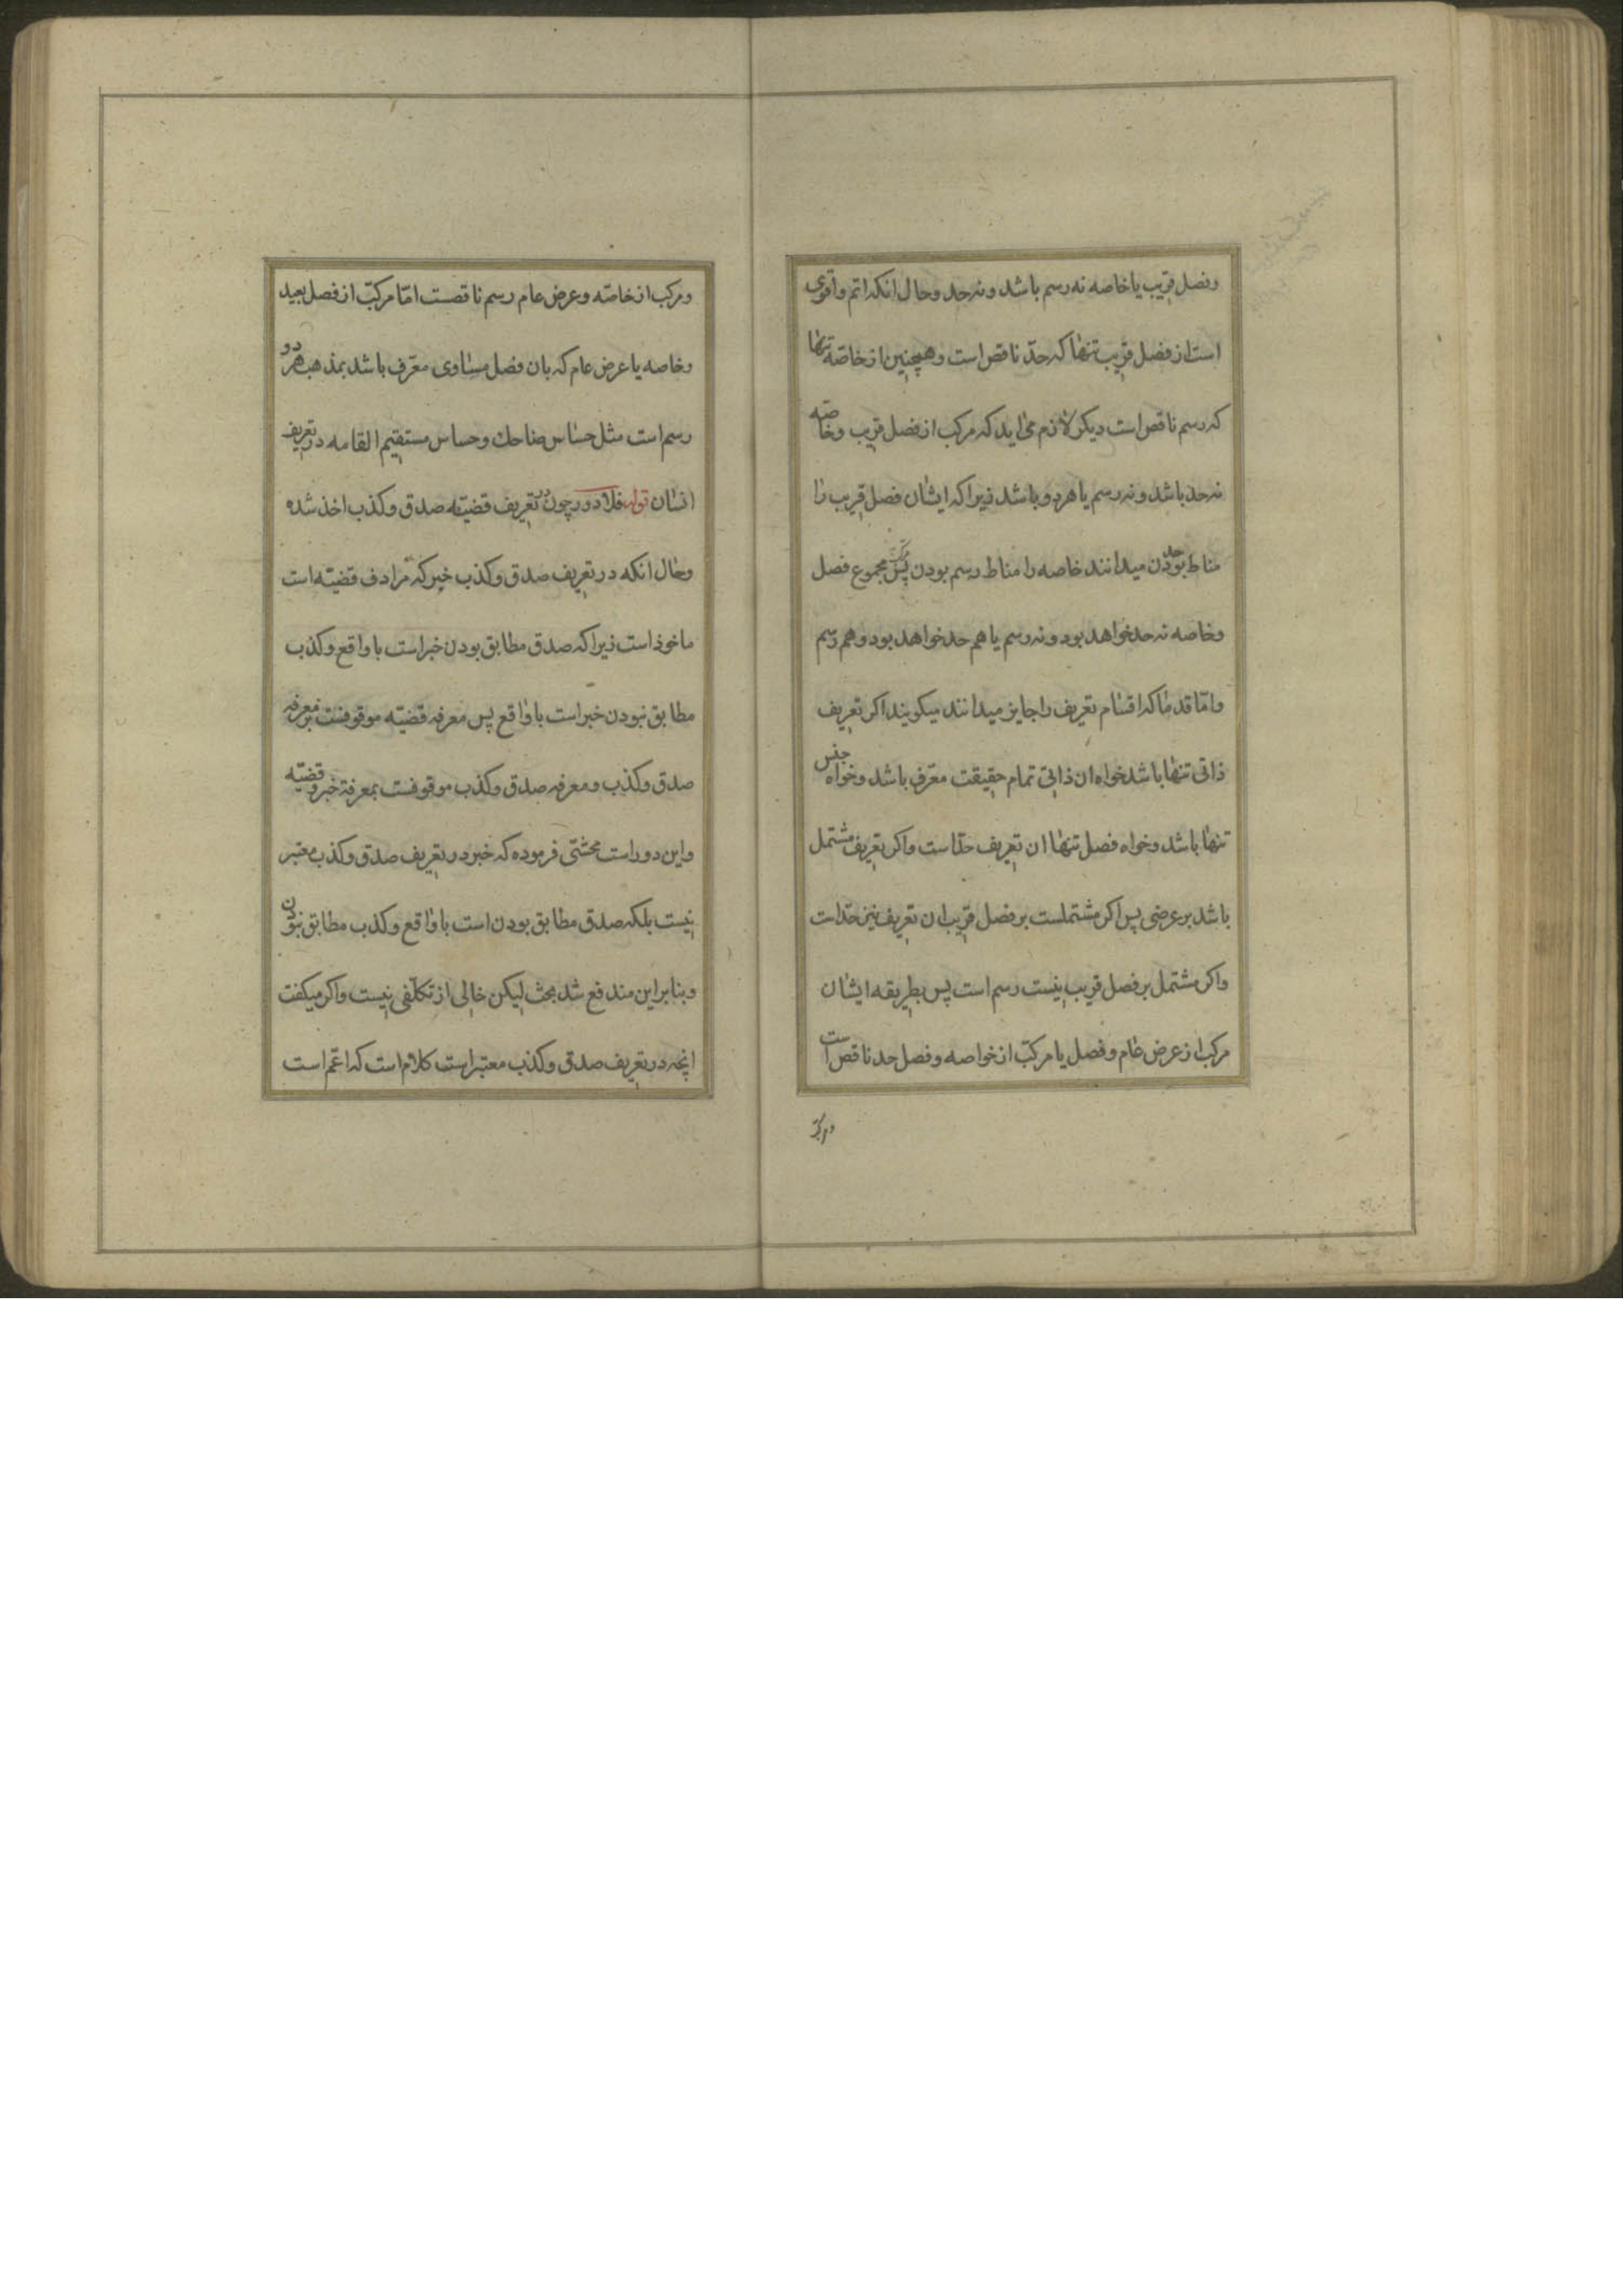 وفصل قریب یا خاصه نه رسم باشد و نه حد وحال انکه اتم واقوی
است از فصل قریب تنها که حدّ ناقص است وهمچنین از خاصّه تنها
که رسم ناقص است دیکر لازم می اید که مرکب از فصل قریب وخاصّه
نه حد باشد و نه رسم یا هر دو باشد زیرا که ایشان فصل قریب را
مناط حد بودن میدانند خاصه را مناط رسم بودن پس مجموع فصل
وخاصه نه حد خواهد بود و نه رسم یا هم حد خواهد بود وهم رسم
وامّا قدما که اقسام تعریف را جایز میدانند میکویند اکر تعریف
ذاتی تنها باشد خواه ان ذاتی تمام حقیقت معرّف باشد وخواه جنس
تنها باشد وخواه فصل تنها ان تعریف حدّ است واکر تعریف مشتمل
باشد بر عرضی پس اکر مشتملست بر فصل قریب ان تعریف نیز حدّ است
واکر مشتمل بر فصل قریب نیست رسم است پس بطریقه ایشان
مرکب از عرض عام وفصل یا مرکّب از خواصه وفصل حد ناقص است
ومرکب
ومرکب از خاصّه وعرض عام رسم ناقصست امّا مرکّب از فصل بعید
وخاصه یا عرض عام که بان فصل مساوی معرّف باشد بمذهب هر دو
رسم است مثل حسّاس ضاحك وحساس مستقیم القامه در تعریف
انسان قوله فلا دور چون در تعریف قضیّه صدق وکذب اخذ شده
وحال انکه در تعریف صدق وکذب خبر که مرادف قضیّه است
ماخوذ است زیرا که صدق مطابق بودن خبر است با واقع وکذب
مطابق نبودن خبر است با واقع پس معرفه قضیّه موقوفست بر معرفه
صدق وکذب ومعرفه صدق وکذب موقوفست بمعرفة خبر وقضیّه
واین دور است محشّی فرموده که خبر در تعریف صدق وکذب معتبر
نیست بلکه صدق مطابق بودن است با واقع وکذب مطابق نبودن
وبنا براین مندفع شد بحث لیکن خالی از تکلّفی نیست واکر میکفت
انچه در تعریف صدق وکذب معتبر است کلام است که اعّم است